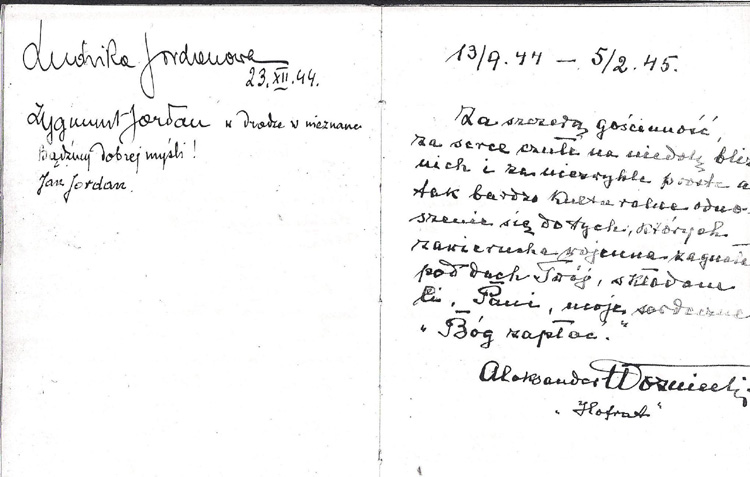 Ludwika Jordanowa
23.XII.44.
Zygmunt Jordan w drodze w nieznane
Bądźmy dobrej myśli!
Jan Jordan.
13/9.44 — 5/2.45.
Za szczerą gościnność,
za serce czułe na niedolę bliź
nich i za niezwykle proste a
tak bardzo kulturalne odno-
szenie się do tych, których
zawierucha wojenna zagnała
pod dach Twój, składam
Ci, Pani, moje serdeczne
"Bóg zapłać."
Aleksander
"Hofrat"